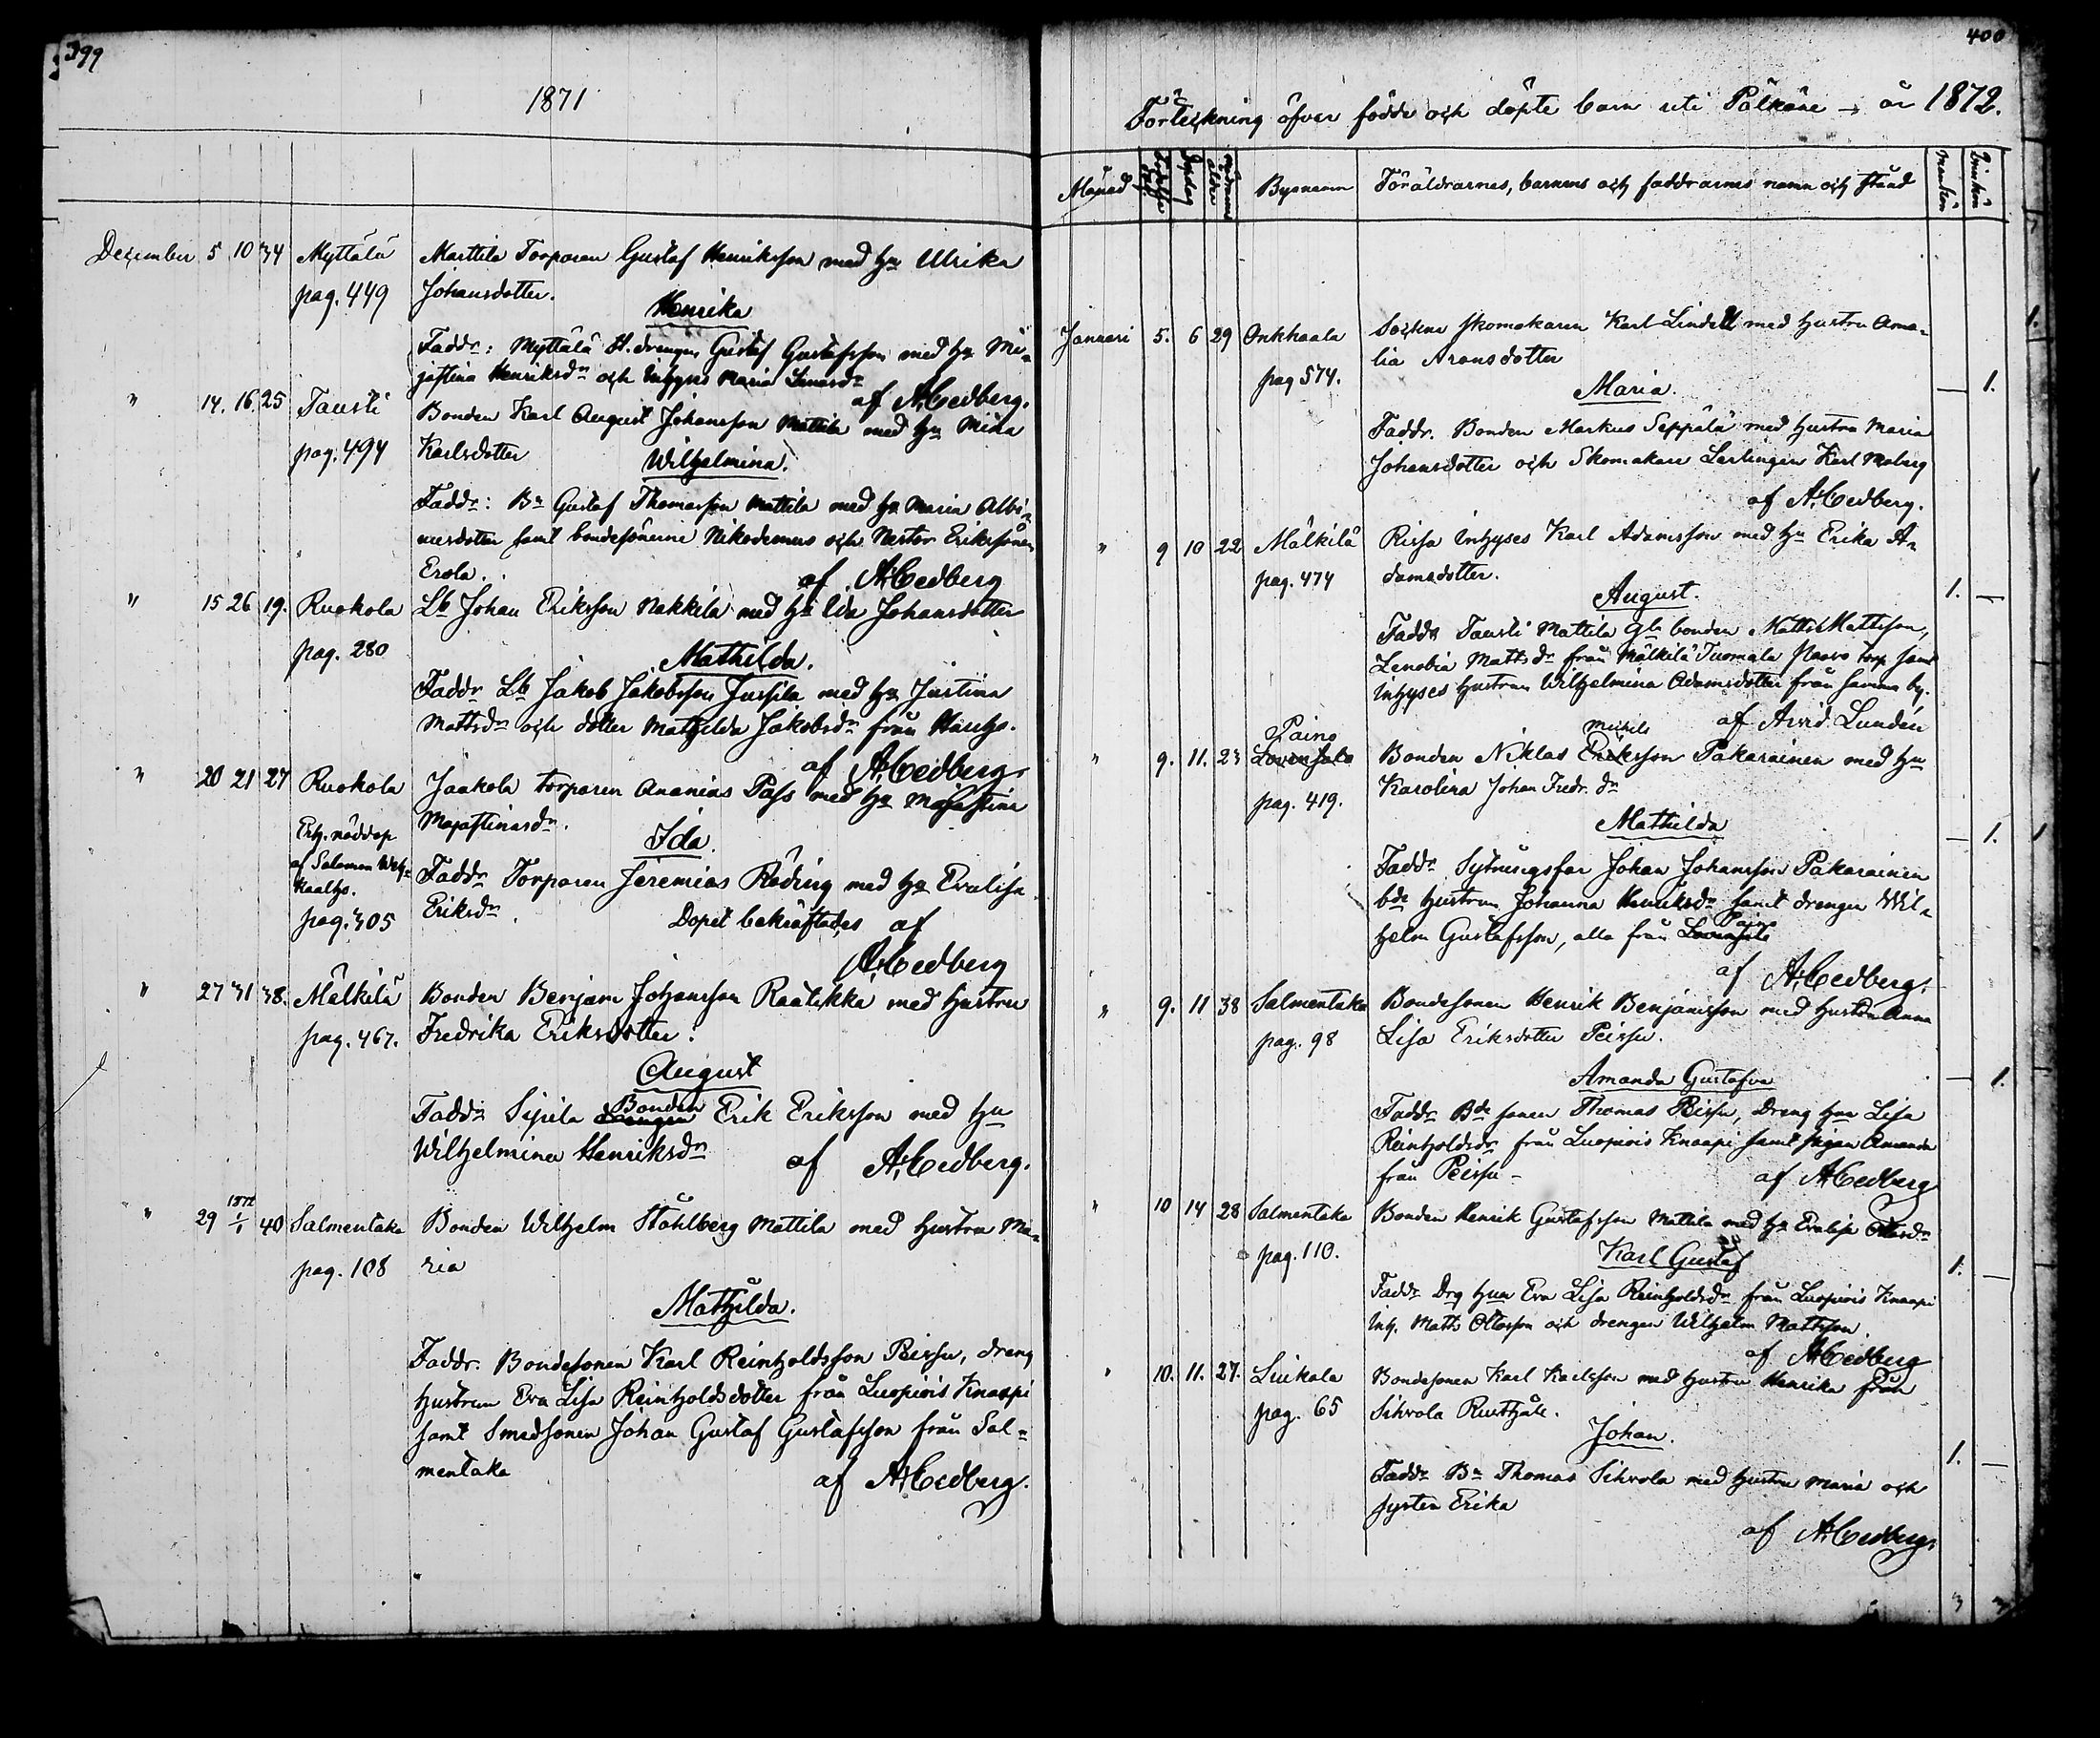 399
1871
December 5 10 34 Myttälä Marttila Torparen Gustaf Henriksson med Hu Ulrika
pag. 449 Johansdotter.
Henrika
Faddr: Myttälä H. drengen Gustaf Gustafsson med Hu
Henriksdr och Inhyses Maria
af A. Cedberg.
" 14. 16. 25 Tausti Bonden Karl August Johansson Mattila med Hu Mina
pag. 494 Karlsdotter
Wilhelmina.
Faddr: Bn Gustaf Thomasson Mattila med Hu Maria Albi-
nusdotter samt bondesönerne Nikodemus och Nestor Erikssöner
Erola.
af A. Cedberg
" 15 26 19. Ruokola Lb Johan Eriksson Nakkila med Hu Ida Johansdotter
pag. 280
Mathilda.
Faddr Lb Jakob Jakobsson Jussila med Hu Justina
Mattsdr och dotter Mathilda Jakobsdr från
af A. Cedberg
" 20 21 27 Ruokola Jaakola torparen Ananias Pass med Hu Majastina
Erh. nöddop Majastinasdr.
af Salomon
Ida.
Faddr Torparen Jeremias Röding med Hu Evalisa
pag. 305 Eriksdr.
Dopet bekräftades af
A. Cedberg
" 27 31 38. Mälkilä Bonden Benjam Johansson Raatikka med Hustru
pag. 467. Fredrika Eriksdotter.
August
Bonden
Faddr Sipila Drengen Erik Eriksson med Hu
Wilhelmina Henriksdr
af A. Cedberg.
1872
" 29 1/1 40 Salmentaka Bonden Wilhelm Ståhlberg Mattila med Hustru Ma-
pag. 108 ria
Mathilda.
Faddr. Bondesonen Karl Reinholdsson Peissu, dreng
Hustrun Eva Lisa Reinholdsdotter från Luopiois Knaapi
samt Smedsonen Johan Gustaf Gustafsson från Sal-
mentaka
af A. Cedberg.
400
Förteckning öfver födde och döpte barn uti Pälkäne — år 1872.
Månad Födelse Dopdag Modrens ålder Byanamn Föräldrarnes, barnens och faddrarnes namn och stånd Mankön Qvinkön
Januari 5. 6 29 Onkkaala Socknе skomakaren Karl Lindell med Hustru Ama-
pag 574. lia Aronsdotter
Maria. — 1.
Faddr. Bonden Markus Seppälä med Hustru Maria
Johansdotter och Skomakare Lärlingen Karl Moberg
af A. Cedberg.
" 9 10 22 Mälkilä Rissa Inhyses Karl Adamsson med Hu Erika A-
pag. 474 damsdotter.
August. 1. —
Faddr Tausti Mattila Glb bonden Matts Mattsson,
Zenobia Mattsdr från Mälkilä Tuomala Paavo torp samt
Inhyses Hustrun Wilhelmina Adamsdotter från samma by.
af Arvid Lundén
Paino Michels
" 9. 11. 23 Lovensalo Bonden Niklas Eriksson Pakarainen med Hu
pag. 419. Karolina Johan Fredr. dr
Mathilda — 1.
Faddr Sytningsfar Johan Johansson Pakarainen
bde Hustrun Johanna Henriksdr samt drengen Wil-
Paino
helm Gustafsson, alla från Lovensalo
af A. Cedberg.
" 9. 11 38 Salmentaka Bondesonen Henrik Benjamsson med Hustru Anna
pag. 98 Lisa Eriksdotter Peissu.
Amanda Gustafva — 1.
Faddr Bde sonen Thomas Peissu, Dreng Hun Lisa
Reinholdsdr från Luopiois Knaapi samt pigan Amanda
från Peissu —
af A. Cedberg
" 10 14 28 Salmentaka Bonden Henrik Gustafsson Mattila med Hu Evalisa Ottosdr
pag. 110.
Karl Gustaf 1. —
Faddr Drg Hun Eva Lisa Reinholdsdr från Luopiois Knaapi
Inh. Matts Ottosson och drengen Wilhelm Mattsson.
af A. Cedberg
" 10. 11. 27. Liukala Bondesonen Karl Karlsson med Hustru Henrika från
pag. 65 Sihvola Rusthåll.
Johan. 1. —
Faddr Bn Thomas Sihvola med Hustru Maria och
syster Erika
af A. Cedberg.
3 3